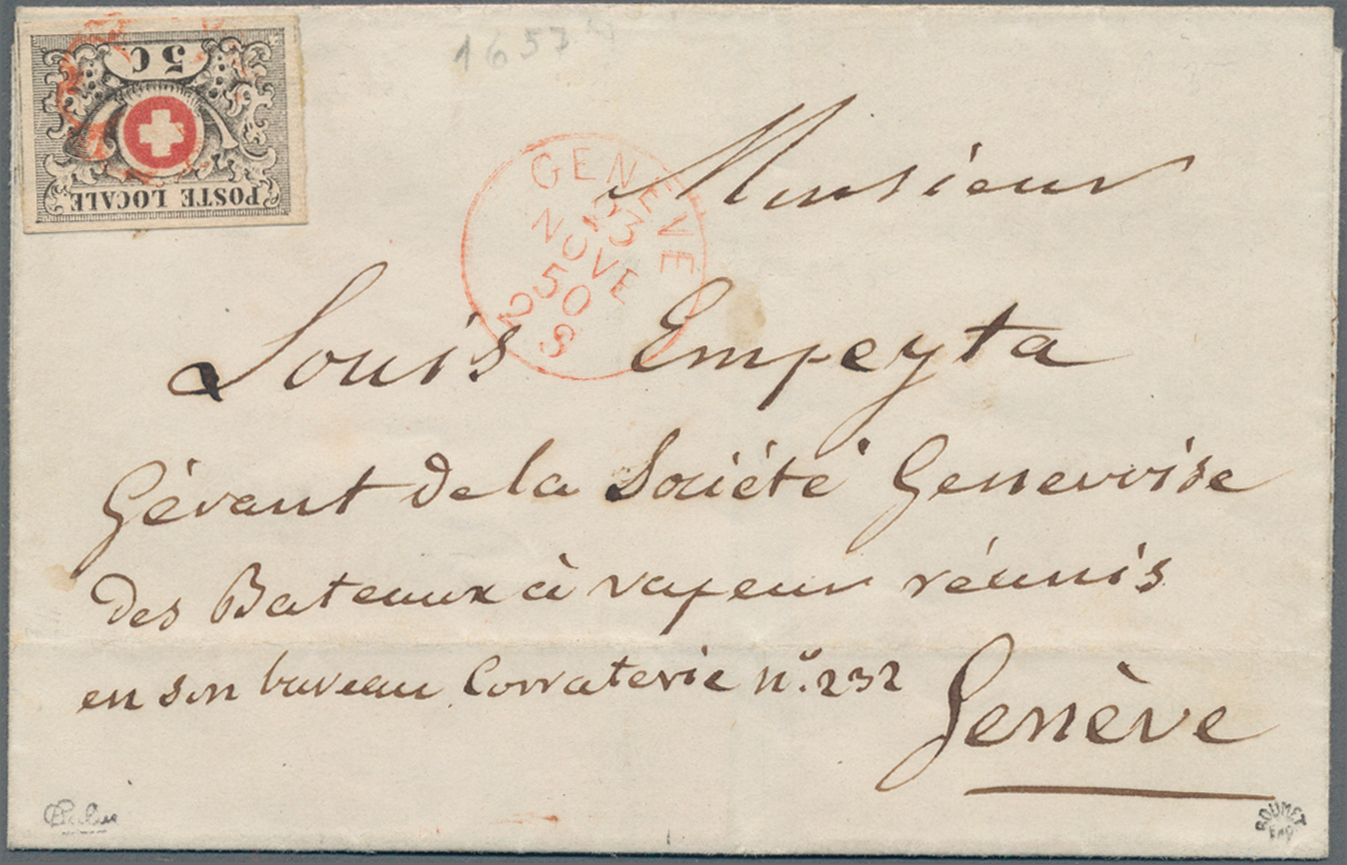 5 C
POSTE LOCALE
1657
GENEVE
23
NOVE
50
2 S
Monsieur
Louis Empeyta
Gérant de la Société Genevoise
des Bateaux à vapeur réunis
en son bureau Corraterie n°. 232
Genève
ROUMET
Exp.